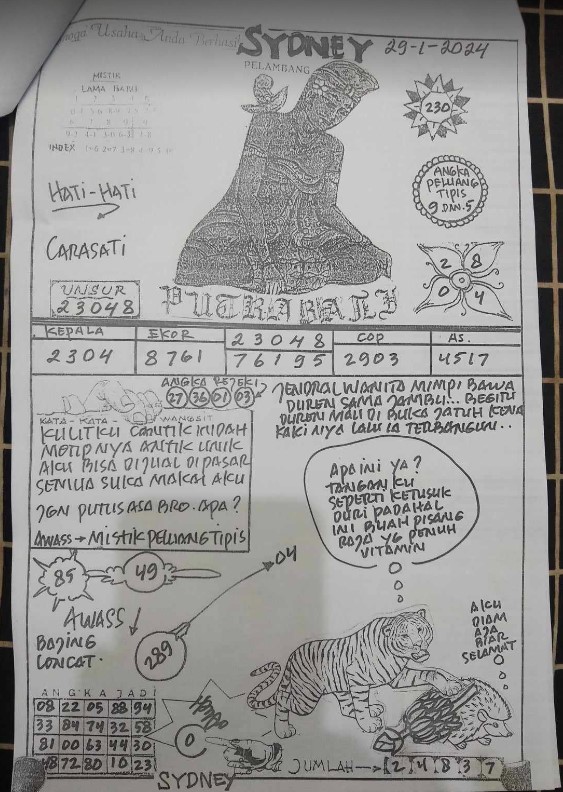 Semoga Usaha Anda Berhasil
SYDNEY
29-1-2024
PELAMBANG
MISTIK
LAMA BARU
INDEX
230
HATI-HATI
ANGKA
PELUANG
TIPIS
9 DAN 5
CARASATI
2 8
0 4
UNSUR
23048
PUTRABALI
KEPALA
EKOR
23048
COP
AS.
2304
8761
76195
2903
4517
ANGKA REJEKI
27 36 01 03
JENDRAL WANITA MIMPI BAWA
DUREN SAMA JAMBU... BEGITU
DUREN MAU DI BUKA JATUH KENA
KAKI NYA LALU IA TERBANGUN..
KATA-KATA WANGSIT
KULITKU CANTIK INDAH
MOTIP NYA ANTIK UNIK
AKU BISA DIJUAL DIPASAR
SEMUA SUKA MAKAI AKU
JGN PUTUS ASA BRO. APA?
AWASS → MISTIK PELUANG TIPIS
APA INI YA?
TANGAN KU
SEPERTI KETUSUK
DURI PADAHAL
INI BUAH PISANG
RAJA YG PENUH
VITAMIN
85
49
04
AWASS
BAJING
LONCAT.
289
AKU
DIAM
AJA
BIAR
SELAMAT
ANGKA JADI
08 22 05 88 94
33 84 74 32 58
81 00 63 44 30
48 72 80 10 23
0
JUMLAH → 2 4 8 3 7
SYDNEY